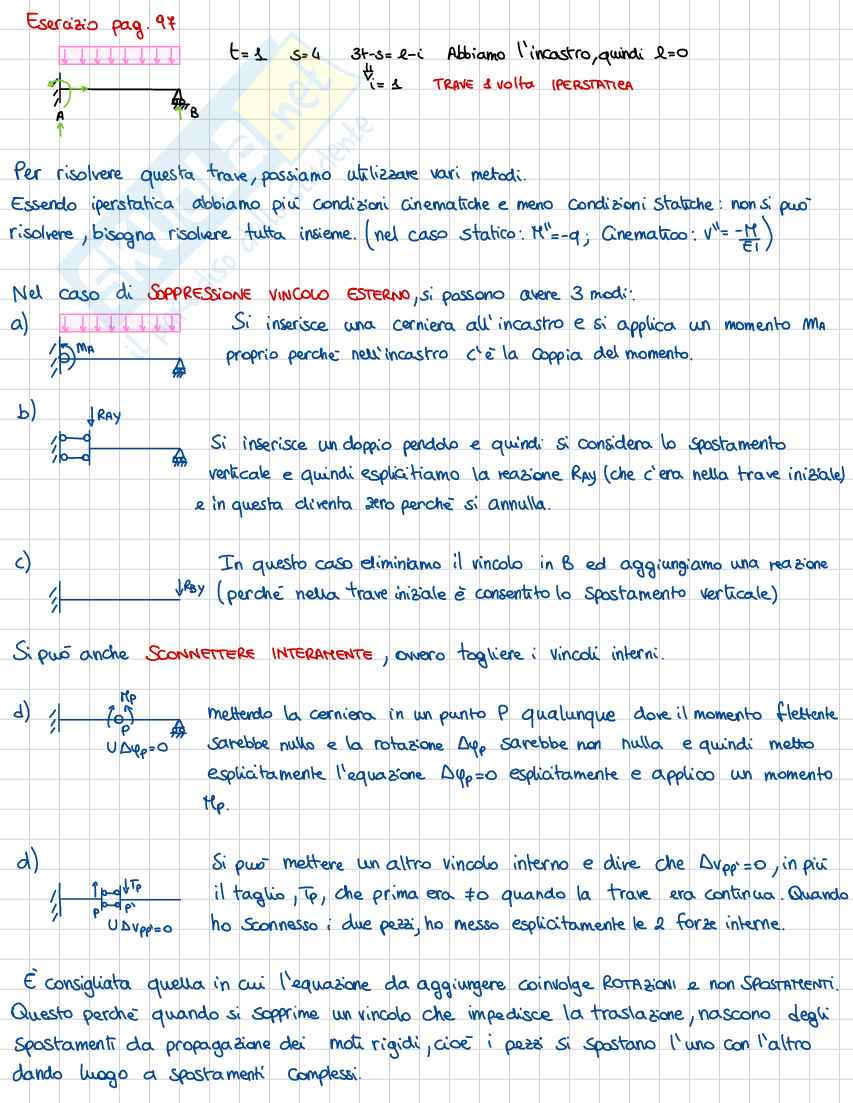 Esercizio pag. 97
t=1 s=4 3t-s=l-i Abbiamo l'incastro, quindi l=0
⇓ i=1 TRAVE 1 volta IPERSTATICA
A
B
Per risolvere questa trave, possiamo utilizzare vari metodi.
Essendo iperstatica abbiamo più condizioni cinematiche e meno condizioni statiche: non si può
risolvere, bisogna risolvere tutta insieme. (nel caso statico: M''=-q; Cinematico: v''=-M/EI)
Nel caso di SOPPRESSIONE VINCOLO ESTERNO, si possono avere 3 modi:
a) Si inserisce una cerniera all'incastro e si applica un momento MA
MA
proprio perchè nell'incastro c'è la coppia del momento.
b)
RAY
Si inserisce un doppio pendolo e quindi si considera lo spostamento
verticale e quindi esplicitiamo la reazione RAY (che c'era nella trave iniziale)
e in questa diventa zero perchè si annulla.
c) In questo caso eliminiamo il vincolo in B ed aggiungiamo una reazione
RBY
(perchè nella trave iniziale è consentito lo spostamento verticale)
Si può anche SCONNETTERE INTERAMENTE, ovvero togliere i vincoli interni.
MP
d) mettendo la cerniera in un punto P qualunque dove il momento flettente
P
U Δφp=0
sarebbe nullo e la rotazione Δφp sarebbe non nulla e quindi metto
esplicitamente l'equazione Δφp=0 esplicitamente e applico un momento
Mp.
d) Si può mettere un altro vincolo interno e dire che ΔVpp'=0, in più
Tp
P P'
il taglio, Tp, che prima era ≠0 quando la trave era continua. Quando
U ΔVpp'=0
ho sconnesso i due pezzi, ho messo esplicitamente le 2 forze interne.
È consigliata quella in cui l'equazione da aggiungere coinvolge ROTAZIONI e non SPOSTAMENTI.
Questo perchè quando si sopprime un vincolo che impedisce la traslazione, nascono degli
spostamenti da propagazione dei moti rigidi, cioè i pezzi si spostano l'uno con l'altro
dando luogo a spostamenti complessi.